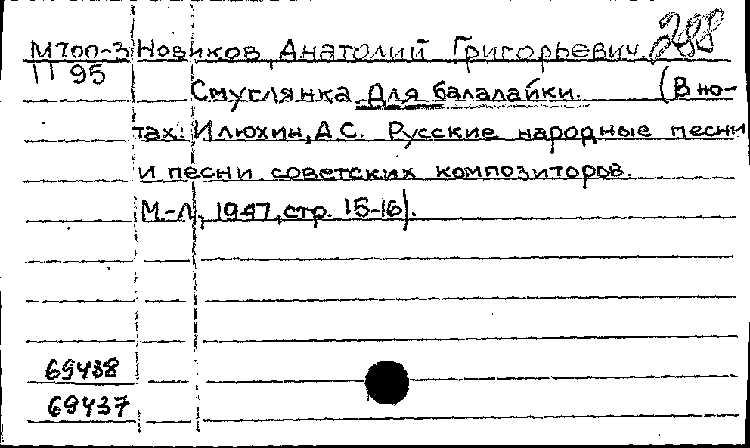 М700-3 Новиков, Анатолий Григорьевич. 288
11 95
Смуглянка. Для балалайки. (В но-
тах: Илюхин, А.С. Русские народные песни
и песни советских композиторов.
М.-Л., 1947, стр. 15-16).
69438
69437